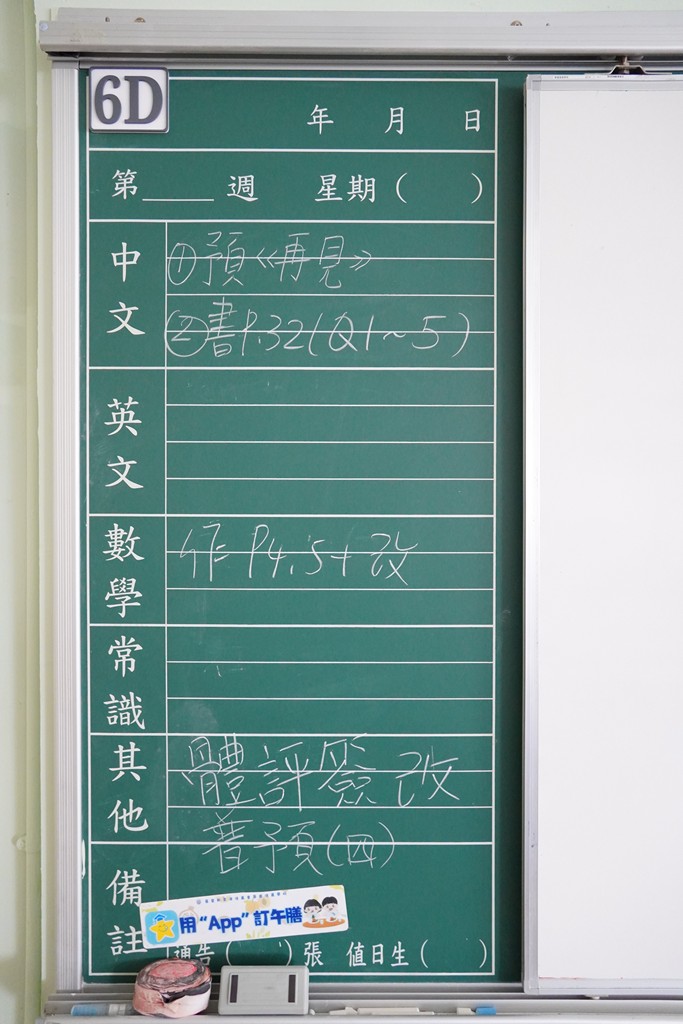 6D
年 月 日
第____週 星期( )
中文
①預《再見》
②書P.32(Q1~5)
英文
數學
作 P4,5+改
常識
其他
體評簽 改
普預(四)
備註
用“App”訂午膳
通告( )張 值日生( )